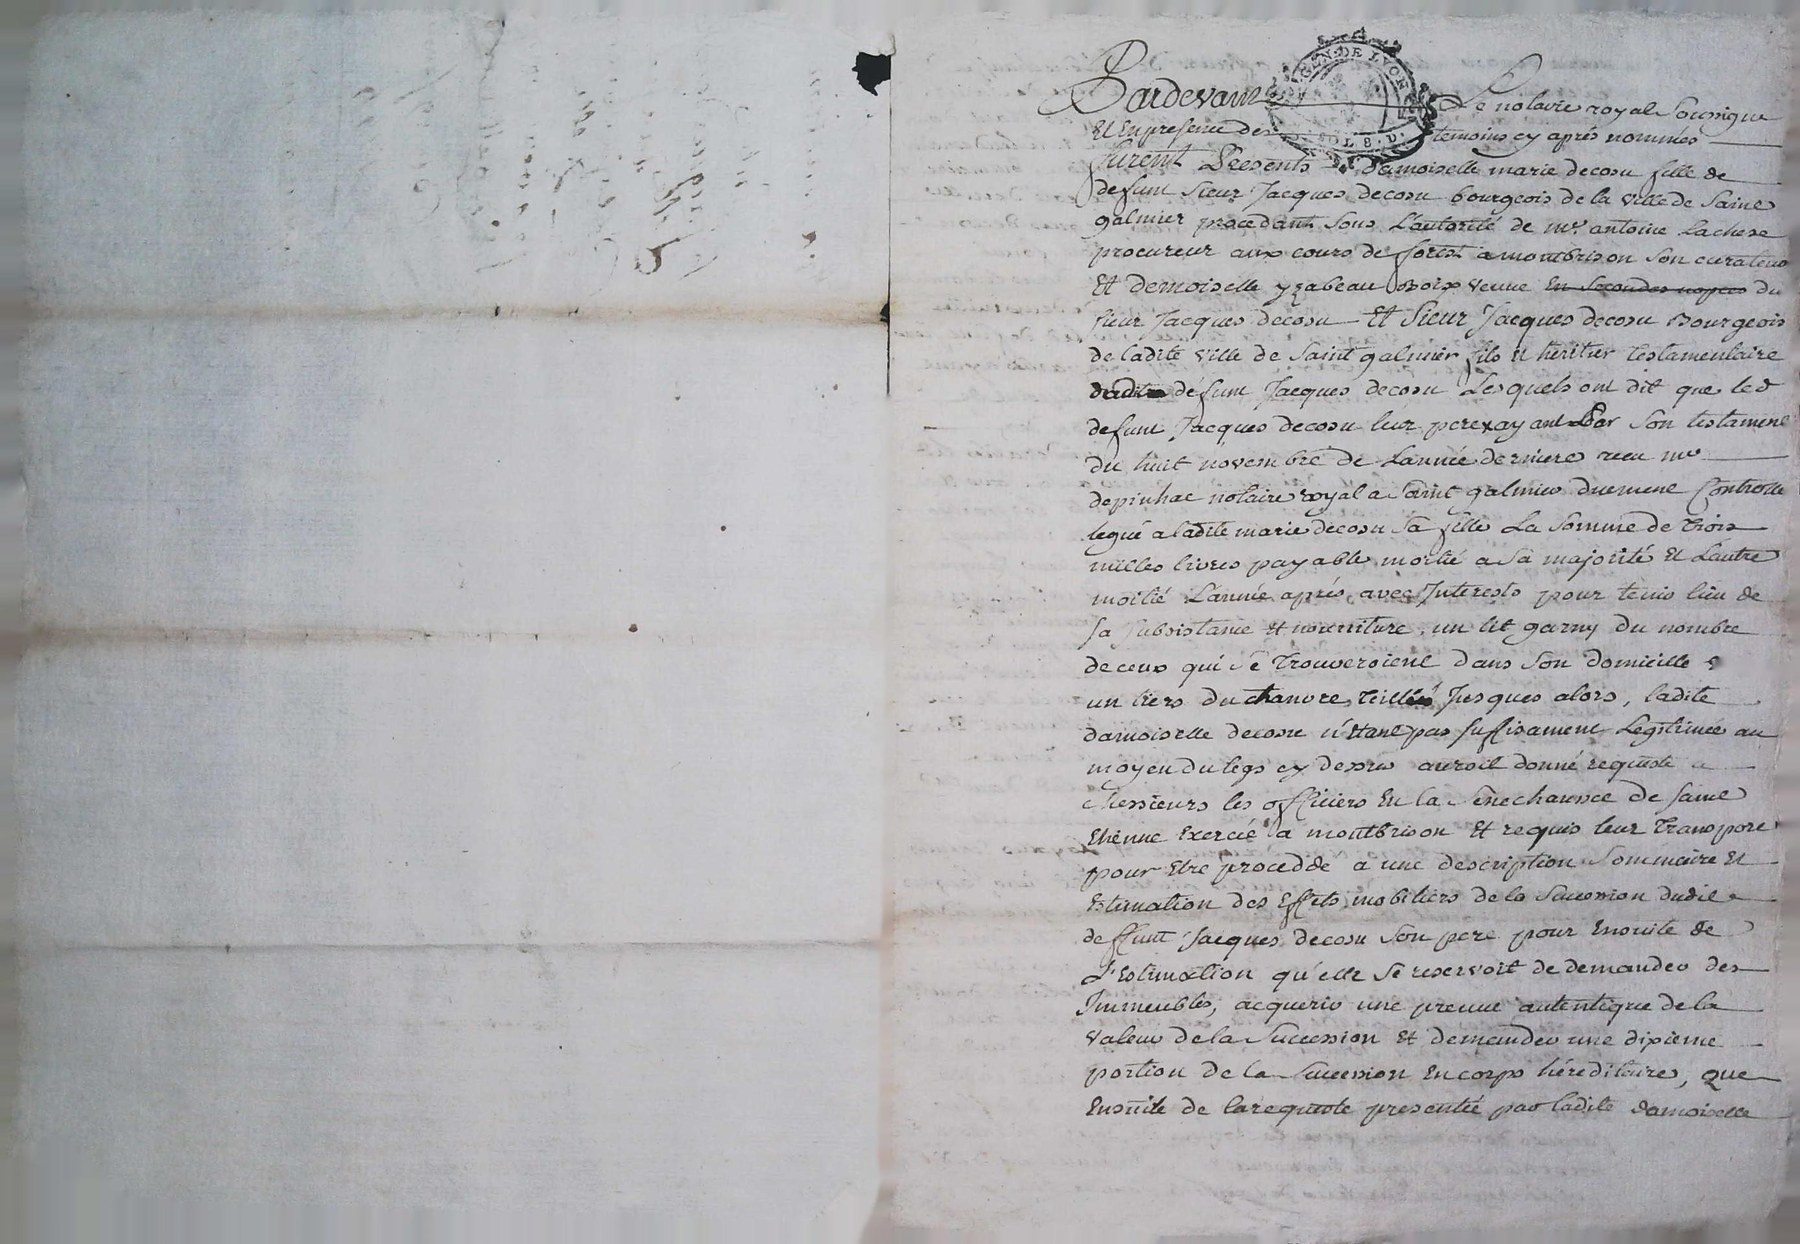 GEN. DE LYON
SOL 8. D.
Pardevant Le notaire royal Soussigne
Et En presence des temoins cy aprés nommés
furent Presents Damoiselle marie decosu fille de
defunt Sieur Jacques decosu bourgeois de la ville de Saint
galmier procedant Sous L'autorité de mr. antoine Lachese
procureur aux cours de forest a montbrison Son curateur
Et demoiselle yzabeau veuve En Secondes nopces du
Sieur Jacques decosu Et Sieur Jacques decosu Bourgeois
de ladite ville de Saint galmier fils et heritier testamentaire
dudit défunt Jacques decosu Lesquels ont dit que led
defunt Jacques decosu leur pere ayant Par Son testament
du huit novembre de Lannée derniere receu me
depinhac notaire royal a Saint galmier duement Controlle
legué a ladite marie decosu Sa fille La Somme de trois
milles livres payable moitié a Sa majorité et Lautre
moitié L'année aprés avec Interests pour tenir lieu de
Sa Subsistance et nourriture, un lit garny du nombre
de ceux qui Se trouveroient dans Son domicille
un tiers du chanvre teillé Jusques alors, ladite
damoiselle decosu n'étant pas Suffisament Legitimée au
moyen du legs cy dessus auroit donné requeste a
Messieurs les officiers En la Senechaussee de Saint
Etienne Exercée a montbrison Et requis leur transport
pour Etre procedde a une description Sommaire et
Estimation des Effets mobiliers de la Succession dudit
deffunt Jacques decosu Son pere pour Ensuite de
L'Estimation qu'elle Se reservoit de demander des
Immeubles, acquerir une preuve autentique de la
valeur de la Succession Et demander une dixieme
portion de la Succession En corps héréditaires, que
Ensuite de la requeste presentée par ladite damoiselle